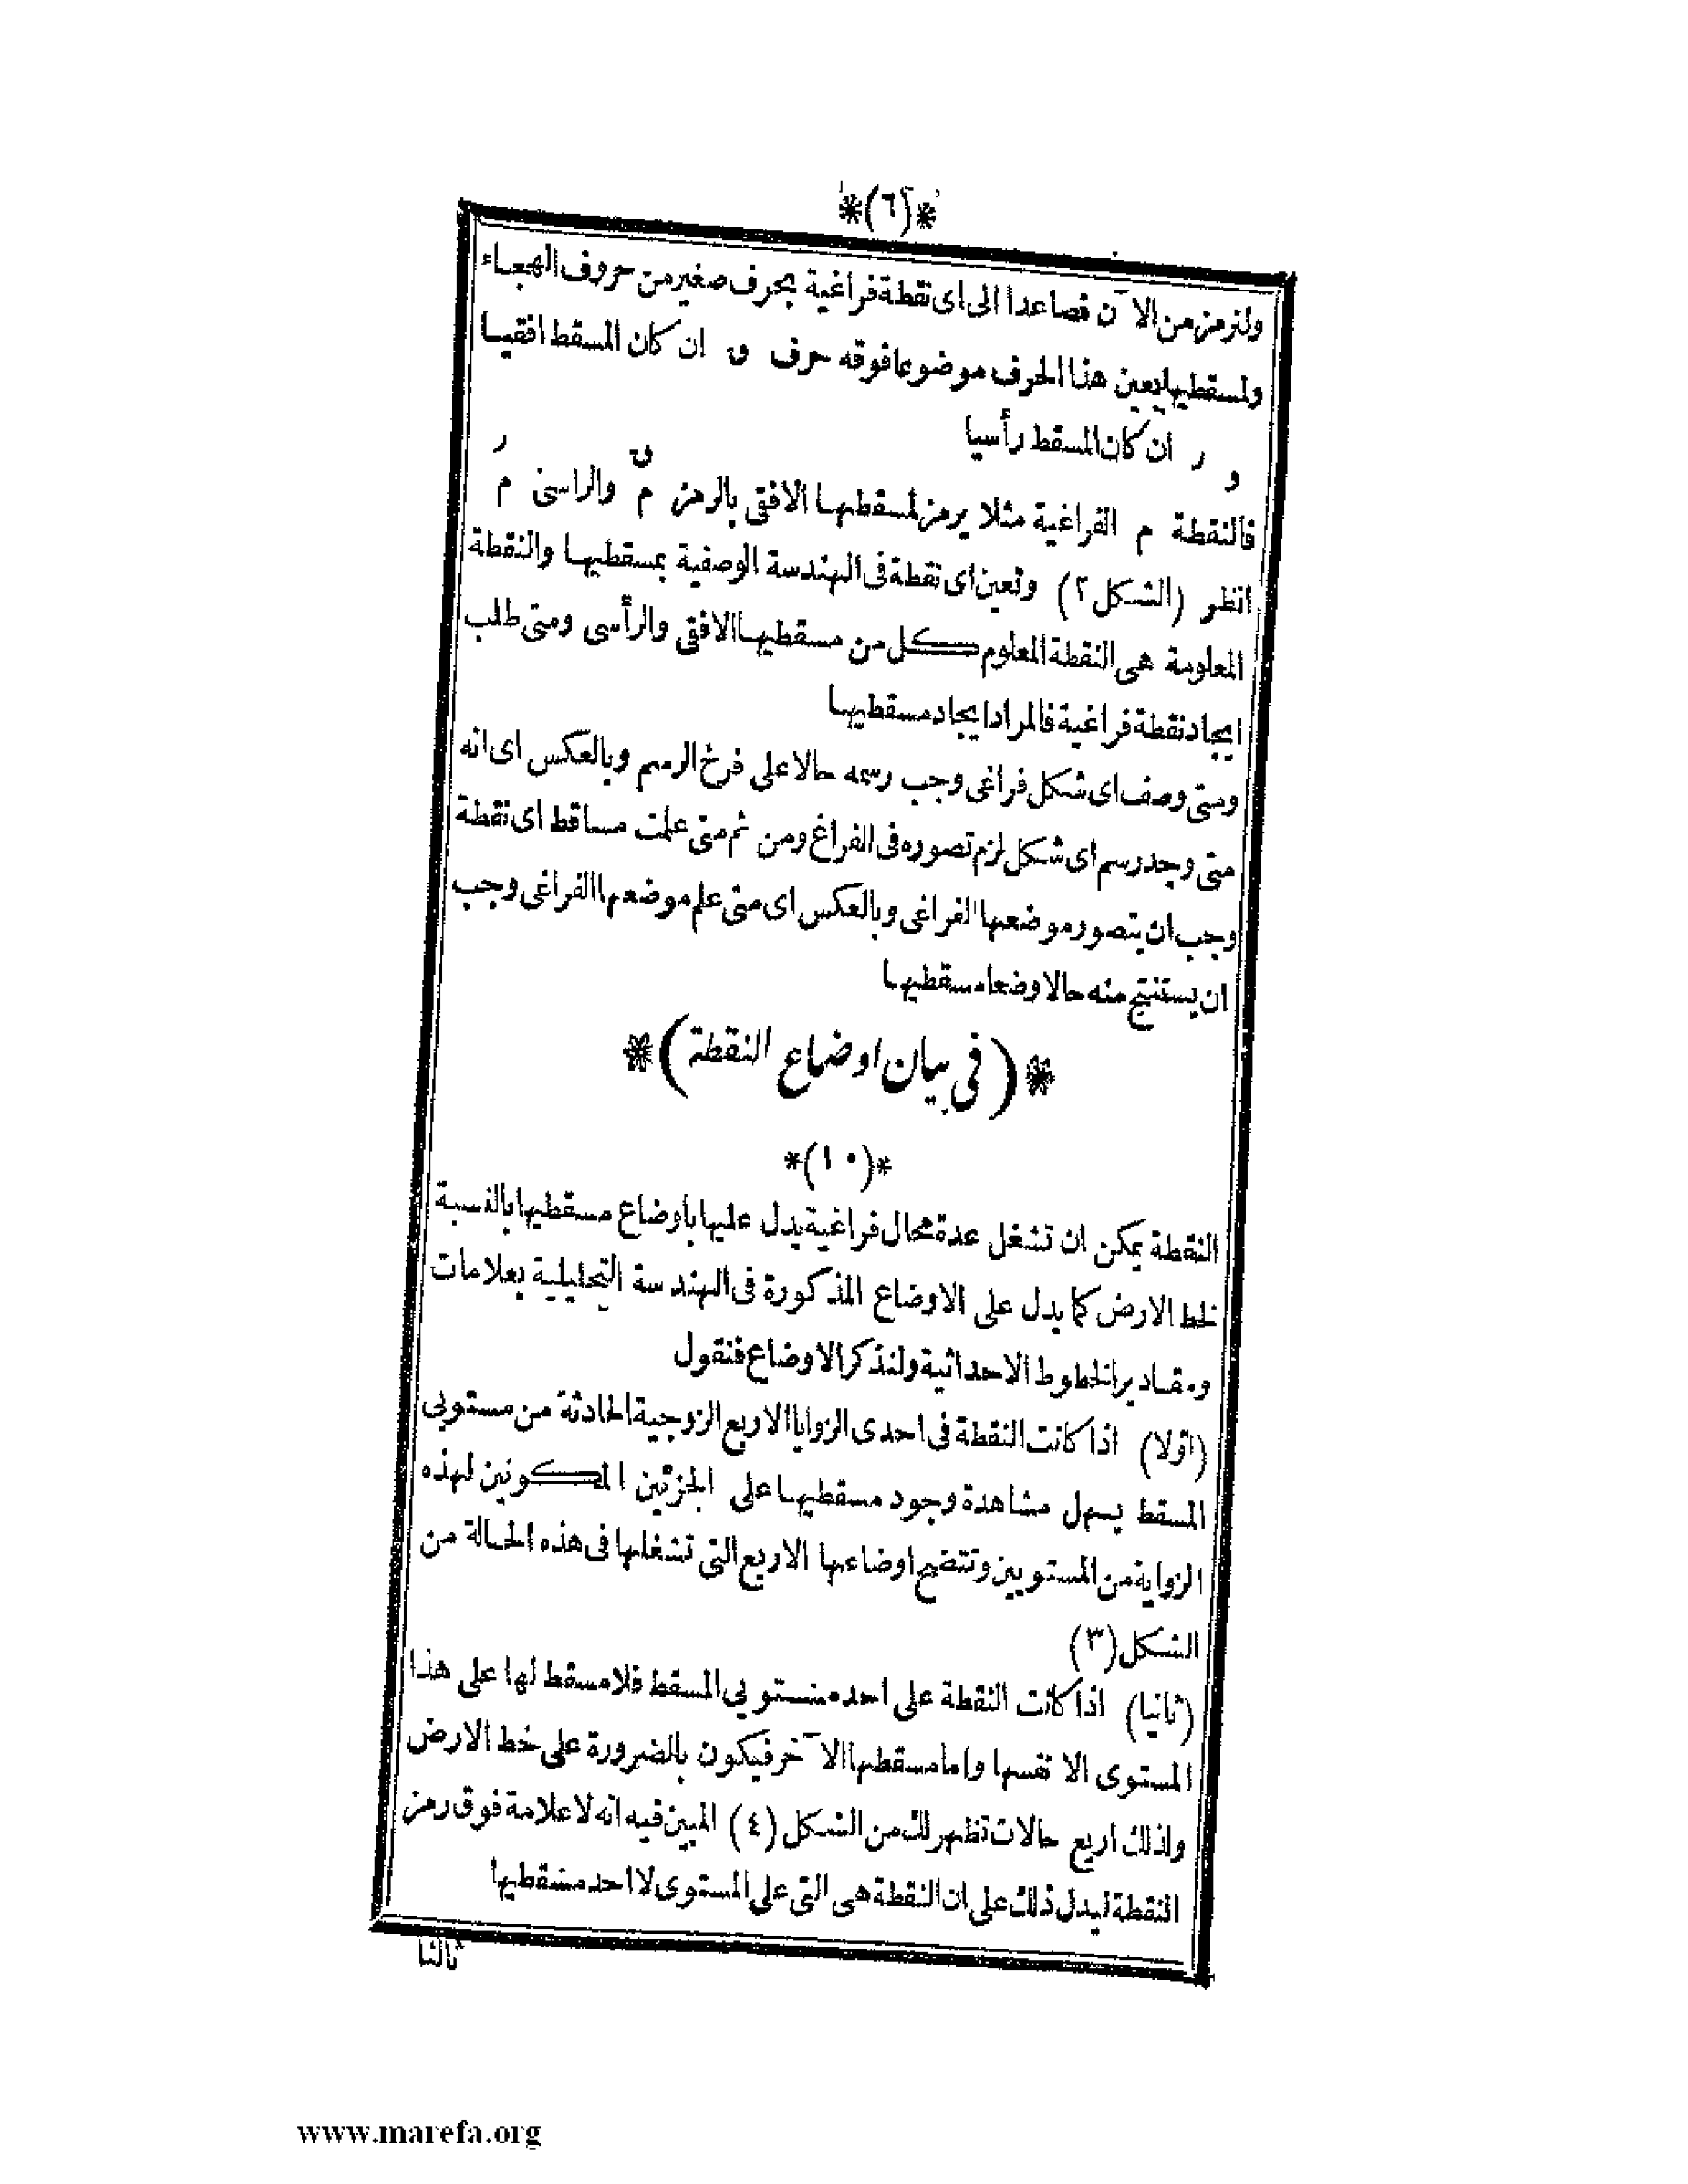 *(٦)*
ولنرمز من الآن فصاعدا الى اى نقطة فراغية بحرف صغير من حروف الهجاء
ولمسقطيها بعين هذا الحرف موضوعا فوقه حرف ق ان كان المسقط افقيا
و ر ان كان المسقط رأسيا
فالنقطة م الفراغية مثلا يرمز لمسقطها الافقى بالرمز مق والراسى مر
انظر (الشكل ٢) وتعين اى نقطة فى الهندسة الوصفية بمسقطيها والنقطة
المعلومة هى النقطة المعلوم كل من مسقطيها الافقى والرأسى ومتى طلب
ايجاد نقطة فراغية فالمراد ايجاد مسقطيها
ومتى وصف اى شكل فراغى وجب رسمه حالا على فرخ الرسم وبالعكس اى انه
متى وجد رسم اى شكل لزم تصوره فى الفراغ ومن ثم متى علمت مساقط اى نقطة
وجب ان يتصور موضعها الفراغى وبالعكس اى متى علم موضعها الفراغى وجب
ان يستنتج منه حالا وضعا مسقطيها
*(فى بيان اوضاع النقطة)*
*(١٠)*
النقطة يمكن ان تشغل عدة محال فراغية يدل عليها باوضاع مسقطيها بالنسبة
لخط الارض كما يدل على الاوضاع المذكورة فى الهندسة التحليلية بعلامات
ومقادير الخطوط الاحداثية ولنذكر الاوضاع فنقول
(اوّلا) اذا كانت النقطة فى احدى الزوايا الاربع الزوجية الحادثة من مستويى
المسقط يسهل مشاهدة وجود مسقطيها على الجزئين المكونين لهذه
الزواية من المستويين وتتضح اوضاعها الاربع التى تشغلها فى هذه الحالة من
الشكل (٣)
(ثانيا) اذا كانت النقطة على احد مستويى المسقط فلا مسقط لها على هذا
المستوى الا نفسها واما مسقطها الآخر فيكون بالضرورة على خط الارض
ولذلك اربع حالات تظهر لك من الشكل (٤) المبين فيه انه لا علامة فوق رمز
النقطة ليدل ذلك على ان النقطة هى التى على المستوى لا احد مسقطيها
ثالثا
www.marefa.org